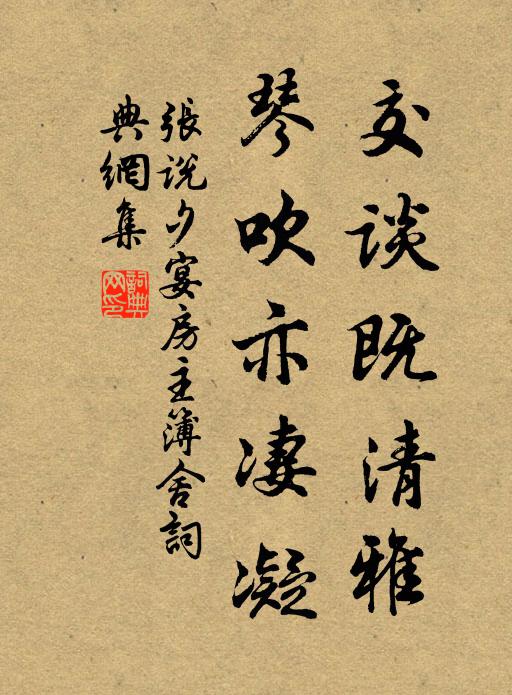 交谈既清雅
琴吹亦凄凝
張說夕宴房主簿舍詞
典網集
詞典网印